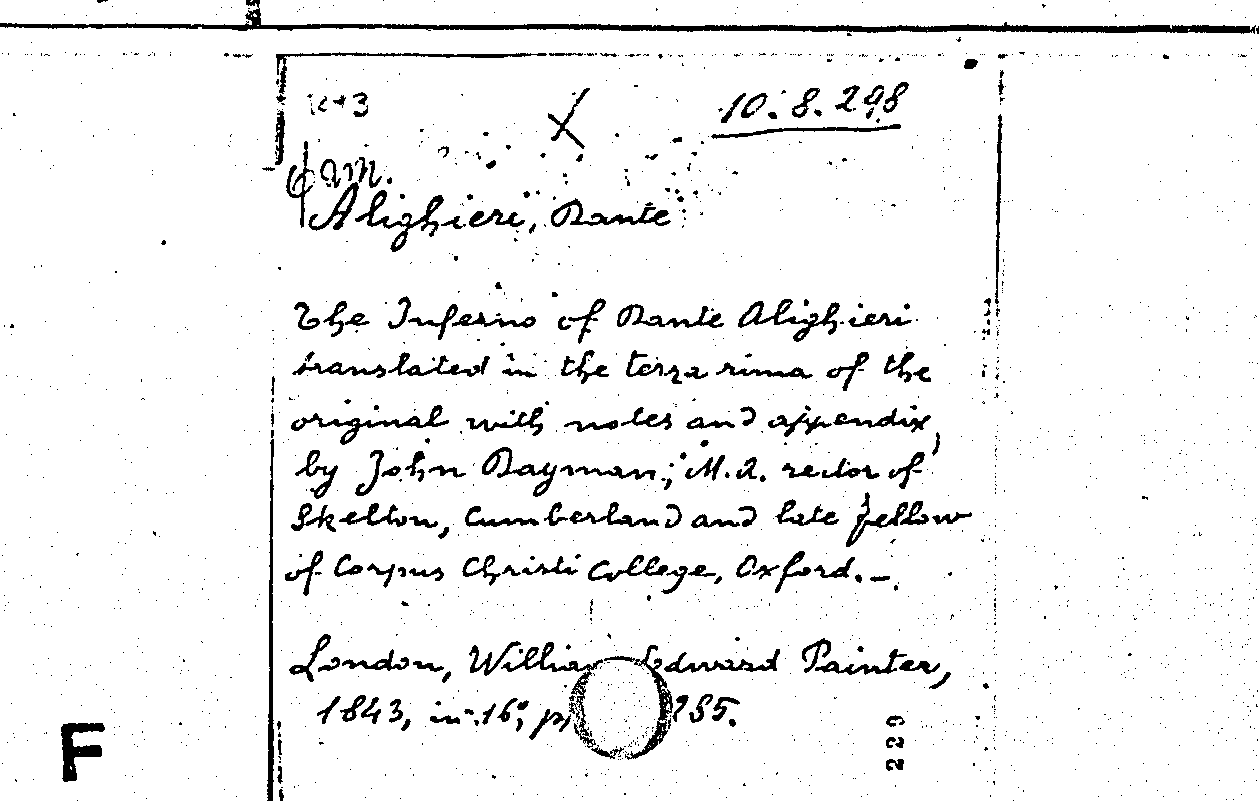 10. 8. 298
Alighieri, Dante
The Inferno of Dante Alighieri
translated in the terza rima of the
original with notes and appendix,
by John Dayman; M.A. rector of
Skelton, Cumberland and late fellow
of Corpus Christi College, Oxford.-
London, William Edward Painter,
1843, in-16°, p. 285.
229
F